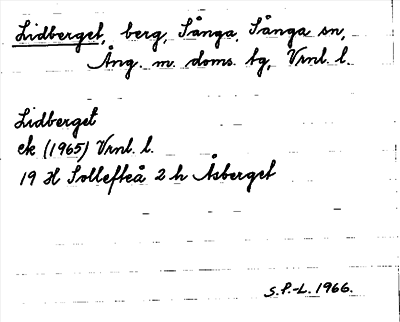 Lidberget, berg, Sånga, Sånga sn,
Ång. m. doms. tg, Vrnl. l.
Lidberget
ek (1965) Vrnl. l.
19 H Sollefteå 2 h Åsberget
S.P.-L. 1966.